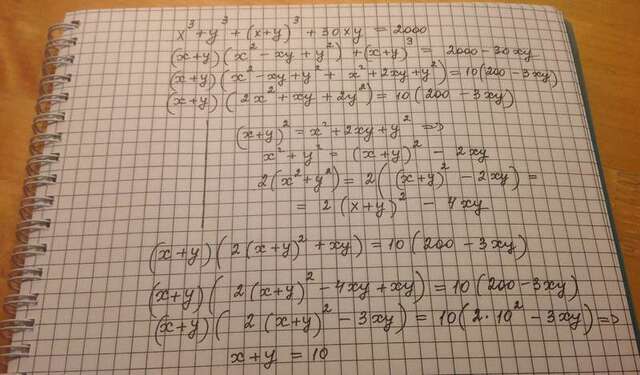 x³ + y³ + (x+y)³ + 30xy = 2000
(x+y)(x² - xy + y²) + (x+y)³ = 2000 - 30xy
(x+y)(x² - xy + y² + x² + 2xy + y²) = 10(200 - 3xy)
(x+y)(2x² + xy + 2y²) = 10(200 - 3xy)
(x+y)² = x² + 2xy + y² =>
x² + y² = (x+y)² - 2xy
2(x² + y²) = 2((x+y)² - 2xy) =
= 2(x+y)² - 4xy
(x+y)(2(x+y)² + xy) = 10(200 - 3xy)
(x+y)(2(x+y)² - 4xy + xy) = 10(200 - 3xy)
(x+y)(2(x+y)² - 3xy) = 10(2·10² - 3xy) =>
x+y = 10